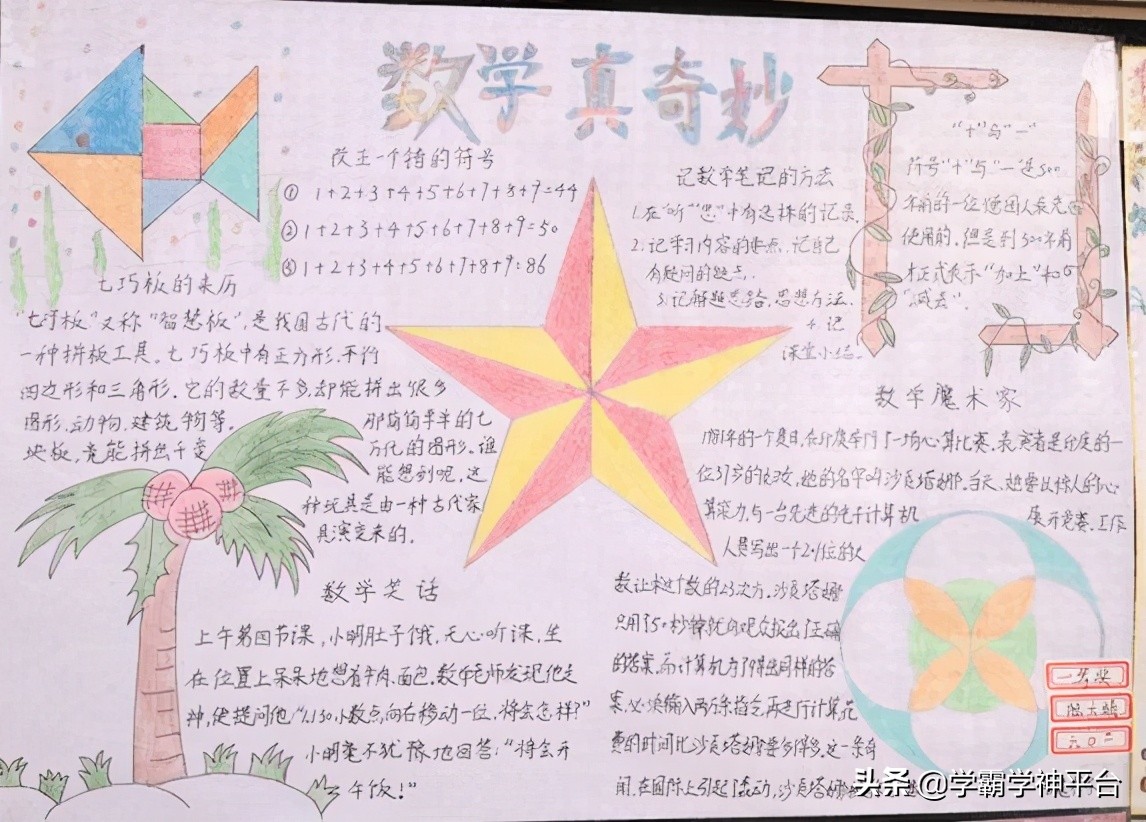 数学真奇妙
改正一个错的符号
① 1+2+3+4+5+6+7+8+9=44
② 1+2+3+4+5+6+7+8+9=50
③ 1+2+3+4+5+6+7+8+9=86
七巧板的来历
"七巧板"又称"智慧板",是我国古代的
一种拼板工具。七巧板中有正方形,平行
四边形和三角形.它的数量不多,却能拼出很多
图形,动物,建筑物等。
那简简单单的七
块板,竟能拼出千变
万化的图形。谁
能想到呢,这
种玩具是由一种古代家
具演变来的.
数学笑话
上午第四节课,小明肚子饿,无心听课,坐
在位置上呆呆地想着牛肉.面包.数学老师发现他走
神,便提问他"1.130,小数点向右移动一位,将会怎样?"
小明毫不犹豫地回答:"将会开
午饭!"
记数学笔记的方法
1.在"听""思"中有选择的记录.
2.记学习内容的要点,记自己
有疑问的疑点.
3.记解题思路,思想方法.
4.记
课堂小结。
"+"与"一"
符号"+"与"一"是500
年前的一位德国人最先
使用的.但是到300年前
才正式表示"加上"和
"减去".
数学魔术家
1981年的一个夏日,在印度举行了一场心算比赛.表演者是印度的一
位37岁的妇女,她的名字叫沙贡塔娜。当天,她要以惊人的心
算能力,与一台先进的电子计算机
展开竞赛.工作
人员写出一个201位的大
数,让求这个数的23次方.沙贡塔娜
只用了50秒钟就向观众报出了正确
的答案.而计算机为了得出同样的答
案,必须输入两万条指令,再进行计算,花
费的时间比沙贡塔娜要多得多.这一条奇
闻,在国际上引起了轰动,沙贡塔娜
一等奖
六〇二
头条@学霸学神平台